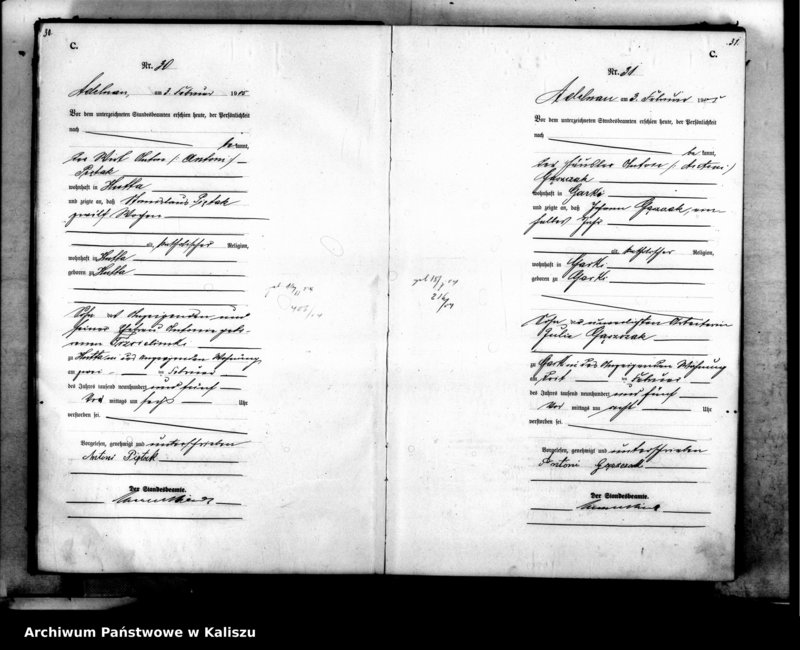 30.
C.
Nr. 30
Adelnau, am 3. Februar 1905
Vor dem unterzeichneten Standesbeamten erschien heute, der Persönlichkeit
nach
be kannt,
der Wirt Anton /: Antoni :/
Piątek
wohnhaft in Hutta
und zeigte an, daß Stanislaus Piątek
zwölf Wochen
alt, katholischer Religion,
wohnhaft in Hutta
geboren zu Hutta
Sohn des Anzeigenden und
seiner Ehefrau
zu Hutta in des Anzeigenden Wohnung
am zwei ten Februar
des Jahres tausend neunhundert und fünf
Vor mittags um sechs Uhr
verstorben sei.
Vorgelesen, genehmigt und unterschrieben
Antoni Piątek
Der Standesbeamte.
31.
C.
Nr. 31
Adelnau am 3. Februar 1905
Vor dem unterzeichneten Standesbeamten erschien heute, der Persönlichkeit
nach
be kannt,
der Häusler Anton /: Antoni :/
wohnhaft in Garki
und zeigte an, daß Johann
halbes Jahr
alt, katholischer Religion,
wohnhaft in Garki
geboren zu Garki
Sohn der unverehelichten Arbeiterin
Julia
zu Garki in des Anzeigenden Wohnung
am Februar
des Jahres tausend neunhundert und fünf
Vor mittags um acht Uhr
verstorben sei.
Vorgelesen, genehmigt und unterschrieben
Antoni
Der Standesbeamte.
Archiwum Państwowe w Kaliszu